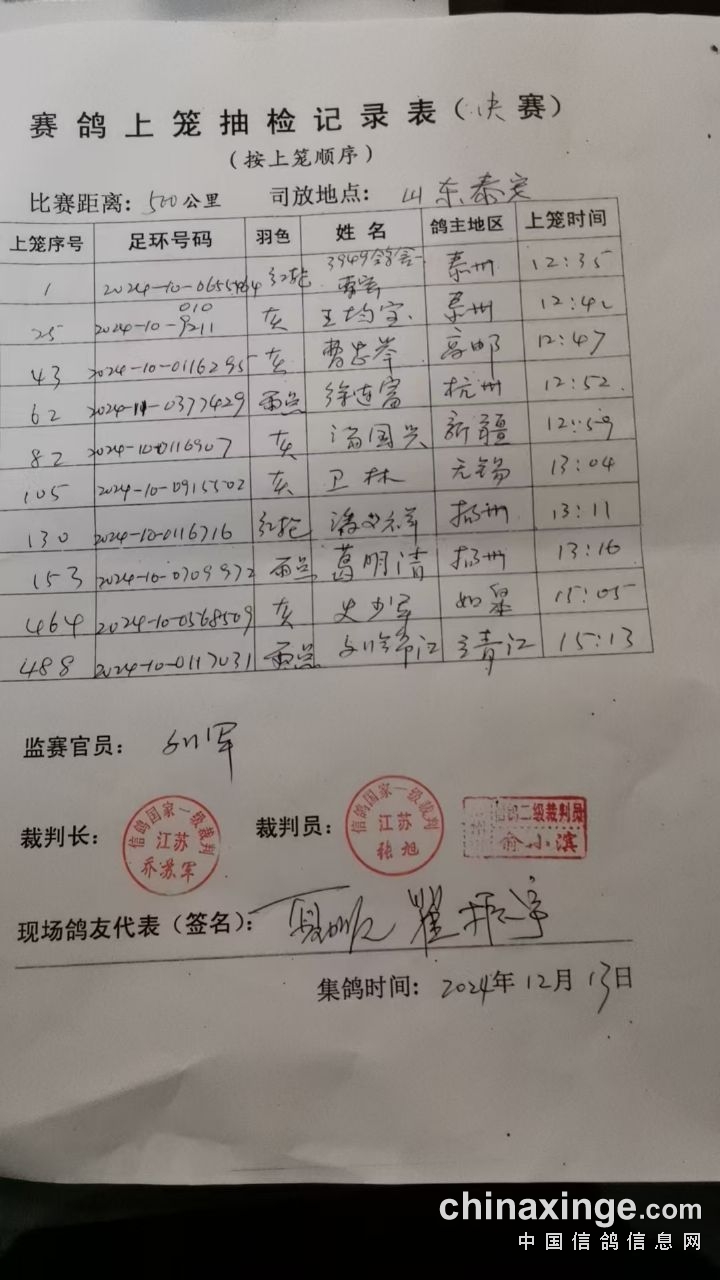 赛鸽上笼抽检记录表(决赛)
(按上笼顺序)
比赛距离: 500公里 司放地点: 山东泰安
上笼序号 足环号码 羽色 姓名 鸽主地区 上笼时间
1 2024-10- 红轮 3949鸽舍- 泰州 12:35
25 2024-10- 灰 王均宝 泰州
43 2024-10-0116295 灰 曹忠 高邮 12:47
62 2024-11-0377429 雨点 徐连富 杭州 12:52
82 2024-10-0116907 灰 潘国兴 新疆 12:59
105 2024-10-0915502 灰 卫林 无锡 13:04
130 2024-10-0116716 红轮 潘 祥 扬州 13:11
153 2024-10-0709972 雨点 葛明清 扬州 13:16
464 2024-10-0568509 灰 史少军 如皋 15:05
488 2024-10-0117031 雨点 江 15:13
监赛官员: 军
裁判长: 信鸽国家一级裁判 江苏 乔苏军 裁判员: 信鸽国家一级裁判 江苏 张旭 信鸽二级裁判员 俞小滨
现场鸽友代表(签名):
集鸽时间: 2024年12月13日
chinaxinge.com
中国信鸽信息网